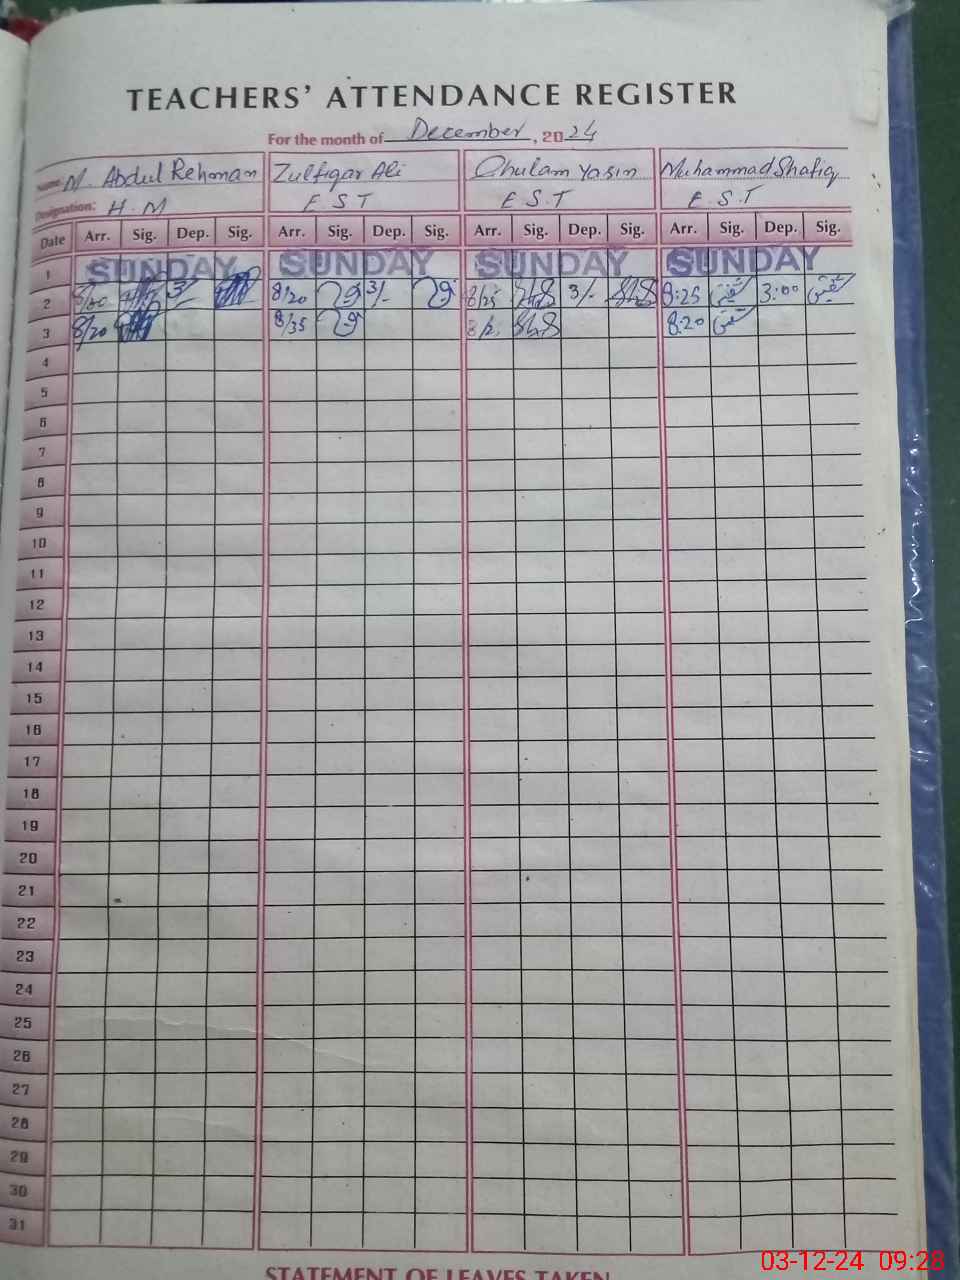 TEACHERS' ATTENDANCE REGISTER
For the month of December, 2024
Name: M. Abdul Rehman Zulfiqar Ali Ghulam Yasin Muhammad Shafiq
Designation: H.M E.S.T E.S.T E.S.T
Date Arr. Sig. Dep. Sig. Arr. Sig. Dep. Sig. Arr. Sig. Dep. Sig. Arr. Sig. Dep. Sig.
1 SUNDAY SUNDAY SUNDAY SUNDAY
2 3/- 8/20 3/- 8/25 3/- 8:25 3:00
3 8/20 8/35 8:20
4
5
6
7
8
9
10
11
12
13
14
15
16
17
18
19
20
21
22
23
24
25
26
27
28
29
30
31
STATEMENT OF LEAVES TAKEN
03-12-24 09:28